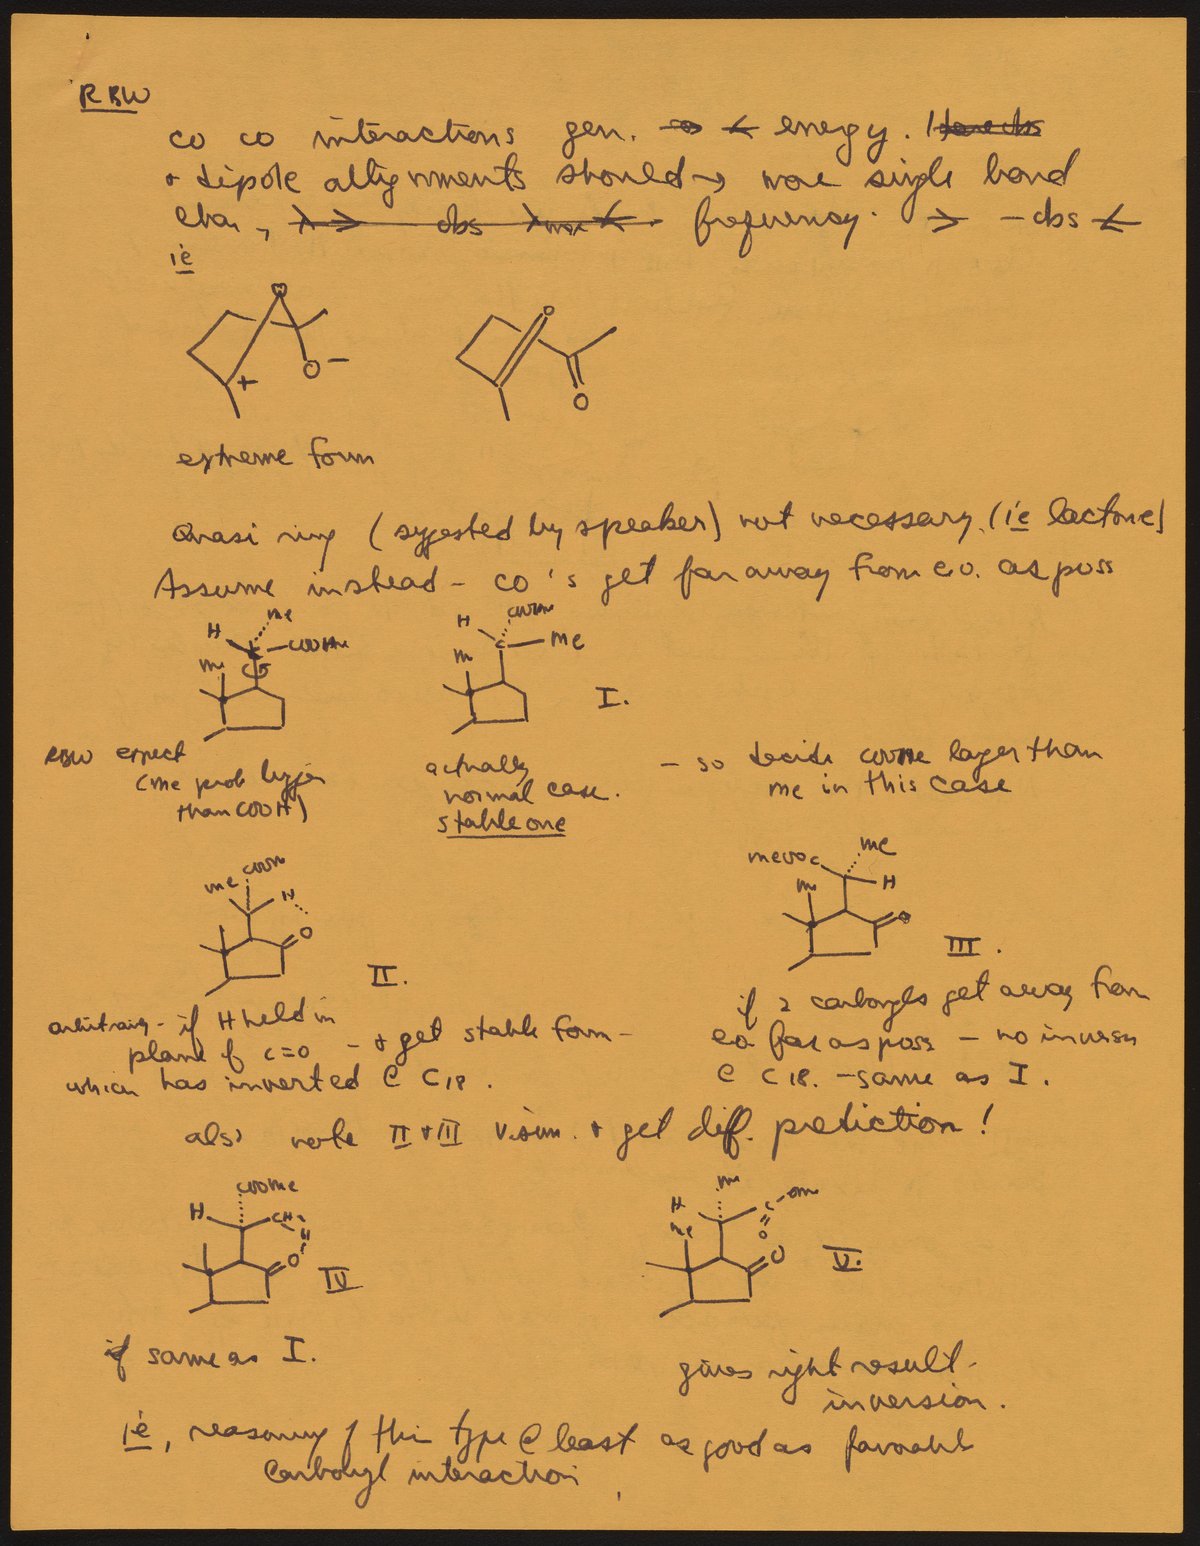 RBW
co co interactions gen. energy.
+ dipole allignments should → more single bond
char, frequency. → - obs
ie
O
+
O -
O
O
extreme form
Quasi ring (sygested by speaker) not necessary. (ie lactone)
Assume instead - co's get far away from e.o. as poss
Me
H
C
COOMe
Me
COOMe
H
C
Me
m
I.
RBW expect
(me prob bigger
than COOH)
actually
normal case.
stable one
- so decide COOMe larger than
me in this case
COOMe
me
H
O
II.
me
meooc
H
m
O
III.
arbitrary - if H held in
plane of c=o - + get stable form -
which has inverted @ C18.
if 2 carbonyls get away from
eo far as poss - no inversn
@ C18. - same as I.
also note II + III v. sim. + get diff. prediction!
COOMe
H
CH2
H
O
IV
me
H
C
OMe
O
Me
O
V.
if same as I.
gives right result -
inversion.
ie, reasoning of this type @ least as good as favorable
Carbonyl interaction